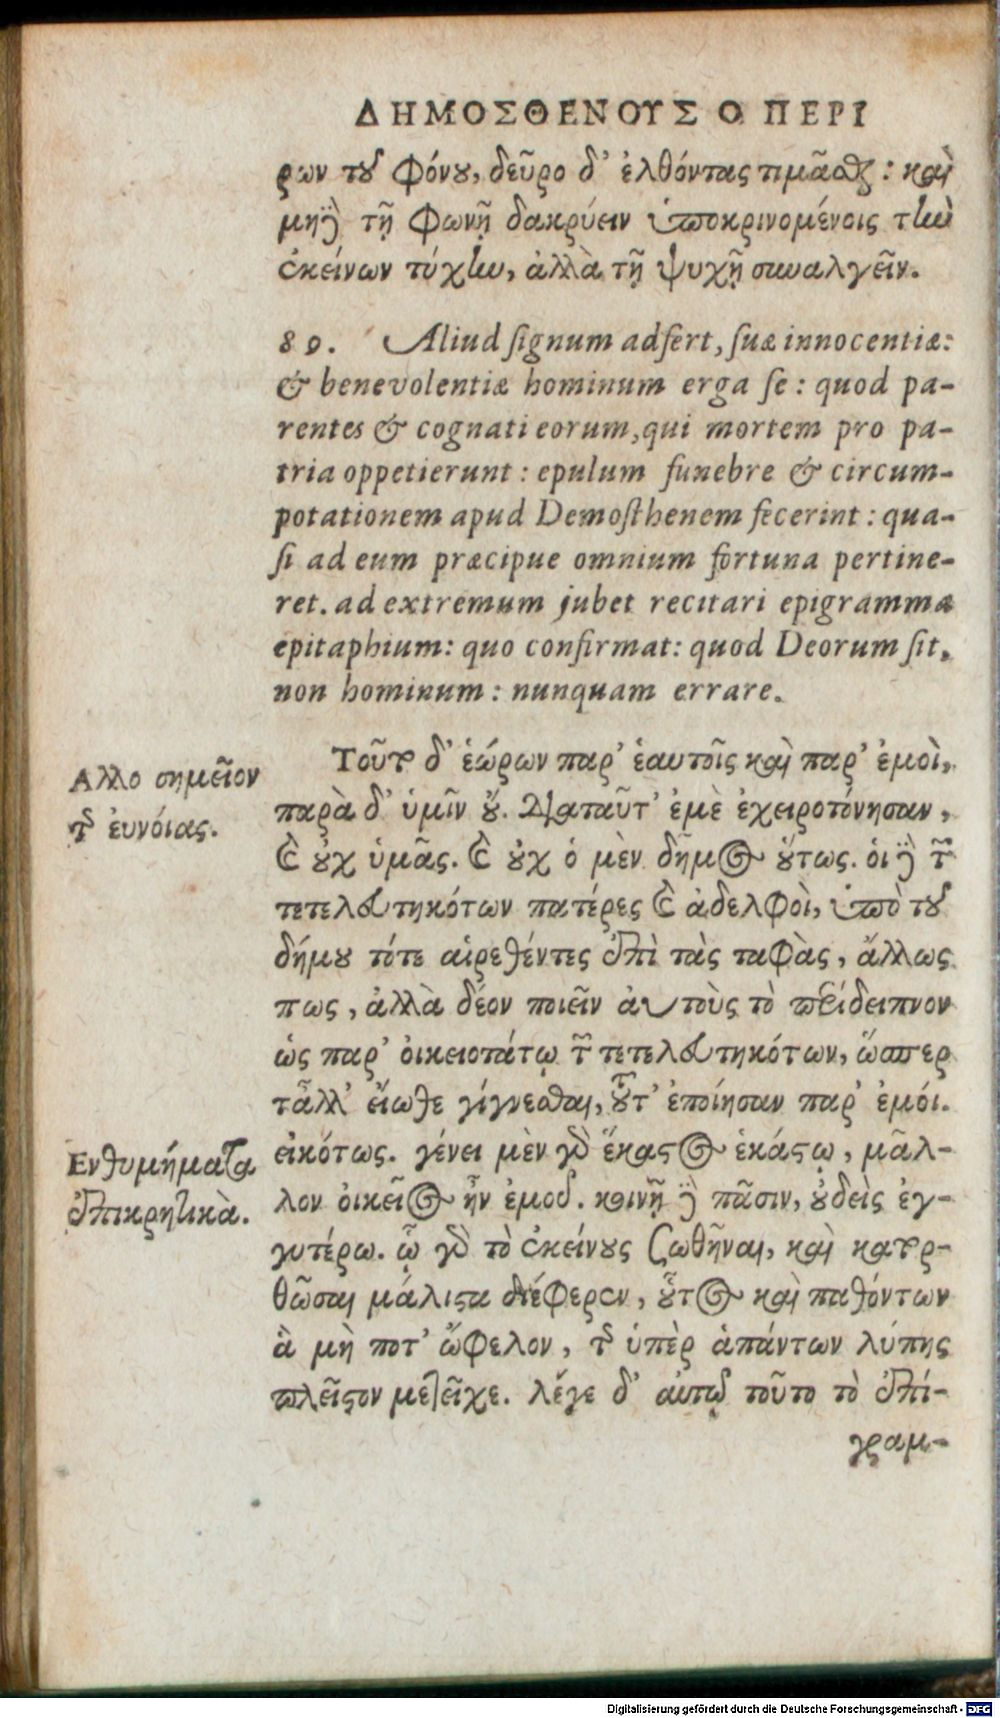 ΔΗΜΟΣΘΕΝΟΥΣ Ο ΠΕΡΙ
ρων τοῦ φόνου, δεῦρο δ' ἐλθόντας τιμᾶσθαι: καὶ
μηδὲ τῇ φωνῇ δακρύειν ὑποκρινομένοις τὴν
ἐκείνων τύχην, ἀλλὰ τῇ ψυχῇ συναλγεῖν.
89. Aliud signum adfert, suæ innocentiæ:
& benevolentiæ hominum erga se: quod pa-
rentes & cognati eorum, qui mortem pro pa-
tria oppetierunt: epulum funebre & circum-
potationem apud Demosthenem fecerint: qua-
si ad eum præcipue omnium fortuna pertine-
ret. ad extremum jubet recitari epigramma
epitaphium: quo confirmat: quod Deorum sit,
non hominum: nunquam errare.
Αλλο σημεῖον
τῆς ἐυνόιας.
Τοῦτο δ' ἑώρων παρ' ἑαυτοῖς καὶ παρ' ἐμοὶ,
παρὰ δ' ὑμῖν οὔ. Διαταῦτ' ἐμὲ ἐχειροτόνησαν,
καὶ οὐχ ὑμᾶς. καὶ οὐχ ὁ μὲν δῆμος οὕτως. ὁι δὲ τῶν
τετελευτηκότων πατέρες καὶ ἀδελφοὶ, ὑπὸ τοῦ
δήμου τότε αἱρεθέντες ἐπὶ τὰς ταφὰς, ἄλλως
πως, ἀλλὰ δέον ποιεῖν ἀυτοὺς τὸ περίδειπνον
ὡς παρ' ὀικειοτάτῳ τῶν τετελευτηκότων, ὥσπερ
τἆλλ' εἴωθε γίγνεσθαι, τοῦτ' ἐποίησαν παρ' ἐμόι.
Ενθυμήματα
ἐπικρητικὰ.
εἰκότως. γένει μὲν γὰρ ἕκαστος ἑκάστῳ, μᾶλ-
λον ὀικεῖος ἦν ἐμοῦ. κοινῇ δὲ πᾶσιν, οὐδεὶς ἐγ-
γυτέρω. ᾧ γὰρ τὸ ἐκείνους σωθῆναι, καὶ κατορ-
θῶσαι μάλιστα διέφερεν, οὗτος καὶ παθόντων
ἃ μὴ ποτ' ὤφελον, τῆς ὑπὲρ ἁπάντων λύπης
πλεῖστον μετεῖχε. λέγε δ' αὐτῷ τοῦτο τὸ ἐπί-
γραμ-
Digitalisierung gefördert durch die Deutsche Forschungsgemeinschaft - DFG